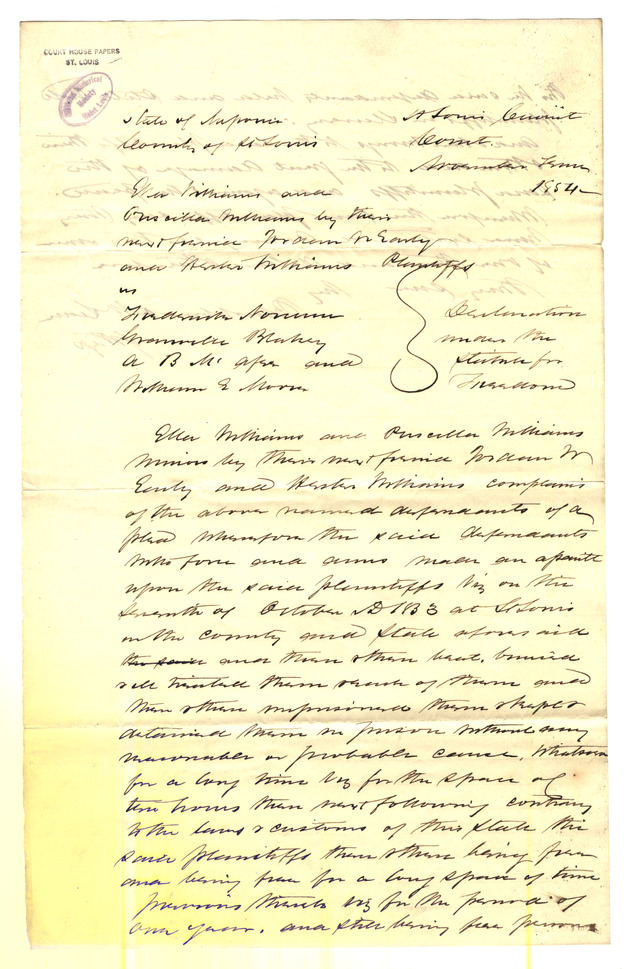 COURT HOUSE PAPERS
ST. LOUIS
Missouri Historical
Society
Saint Louis
State of Missouri St Louis Circuit
County of St Louis Court
November Term
1854
Ella Williams and
Priscilla Williams by their
next friend Jordan W Early
and Hester Williams Plaintiffs
vs
Frederick Norcum Declaration
Granville Blakey under the
A B Mc afee and Statute for
William E Moore Freedom
Ella Williams and Priscilla Williams
minors by their next friend Jordan W
Early and Hester Williams complains
of the above named defendants of a
plea wherefore the said defendants
with force and arms made an assault
upon the said plaintiffs viz on the
Seventh of October AD 1853 at St Louis
in the county and State aforesaid
the said and then & there beat, bruised
& ill treated them each of them and
then & there imprisoned them & kept &
detained them in prison without any
reasonable or probable cause, whatsoever
for a long time viz for the space of
ten hours then next following contrary
to the laws & customs of this State the
said plaintiffs then & there being free
and being free for a long space of time
previous thereto viz for the period of
one year. and still being free persons